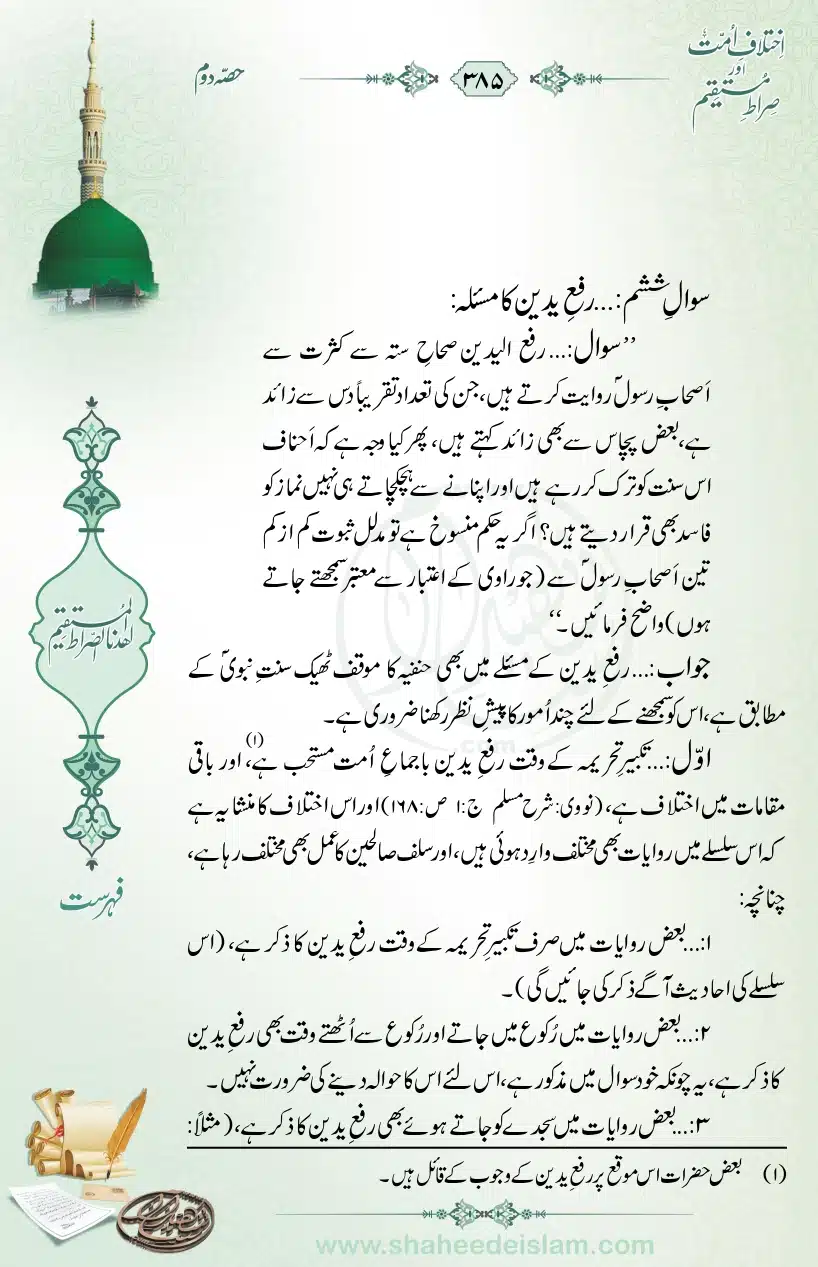 اِختلافِ اُمّت
اور
صِراطِ مُستقیم
۳۸۵
حصّہ دوم
سوالِ ششم:...رفعِ یدین کا مسئلہ:
’’سوال:...رفع الیدین صحاحِ ستہ سے کثرت سے
اَصحابِ رسولؐ روایت کرتے ہیں، جن کی تعداد تقریباً دس سے زائد
ہے، بعض پچاس سے بھی زائد کہتے ہیں، پھر کیا وجہ ہے کہ اَحناف
اس سنت کو ترک کر رہے ہیں اور اپنانے سے ہچکچاتے ہی نہیں نماز کو
فاسد بھی قرار دیتے ہیں؟ اگر یہ حکم منسوخ ہے تو مدلل ثبوت کم از کم
تین اَصحابِ رسولؐ سے (جو راوی کے اعتبار سے معتبر سمجھتے جاتے
ہوں) واضح فرمائیں۔‘‘
جواب:...رفعِ یدین کے مسئلے میں بھی حنفیہ کا موقف ٹھیک سنتِ نبویؐ کے
مطابق ہے، اس کو سمجھنے کے لئے چند اُمور کا پیشِ نظر رکھنا ضروری ہے۔
اوّل:...تکبیرِ تحریمہ کے وقت رفعِ یدین باجماعِ اُمت مستحب ہے،(۱) اور باقی
مقامات میں اختلاف ہے، (نووی: شرح مسلم ج:۱ ص:۱۶۸) اور اس اختلاف کا منشا یہ ہے
کہ اس سلسلے میں روایات بھی مختلف وارِد ہوئی ہیں، اور سلف صالحین کا عمل بھی مختلف رہا ہے،
چنانچہ:
۱:...بعض روایات میں صرف تکبیرِ تحریمہ کے وقت رفعِ یدین کا ذکر ہے، (اس
سلسلے کی احادیث آگے ذکر کی جائیں گی)۔
۲:...بعض روایات میں رُکوع میں جاتے اور رُکوع سے اُٹھتے وقت بھی رفعِ یدین
کا ذکر ہے، یہ چونکہ خود سوال میں مذکور ہے، اس لئے اس کا حوالہ دینے کی ضرورت نہیں۔
۳:...بعض روایات میں سجدے کو جاتے ہوئے بھی رفعِ یدین کا ذکر ہے، (مثلاً:
(۱) بعض حضرات اس موقع پر رفعِ یدین کے وجوب کے قائل ہیں۔
اهدنا الصّراط المُستقیم
فہرست
www.shaheedeislam.com